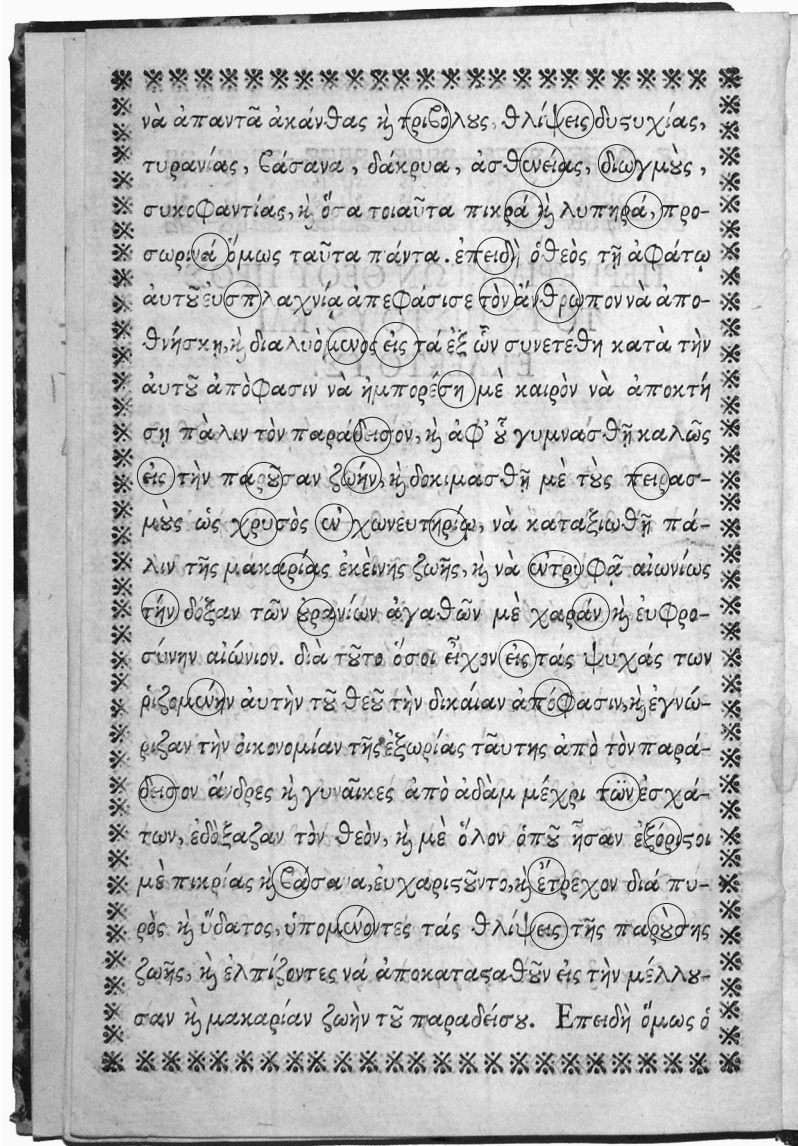 νὰ ἀπαντᾶ ἀκάνθας ϗ̀ τριβόλȣς, θλίψεις δυςυχίας,
τυρανίας, βάσανα, δάκρυα, ἀσθενείας, διωγμȣ̀ς,
συκοφαντίας, ϗ̀ ὅσα τοιαῦτα πικρά ϗ̀ λυπηρά, προ-
σωρινά ὅμως ταῦτα πάντα. ἐπειδὴ ὁ θεὸς τῇ ἀφάτῳ
ἀυτȣ͂ ἐυσπλαχνίᾳ ἀπεφάσισε τὸν ἄνθρωπον νὰ ἀπο-
θνήσκῃ, ϗ̀ διαλυόμενος εἰς τά ἐξ ὧν συνετέθη κατὰ τὴν
ἀυτȣ͂ ἀπόφασιν νὰ ἠμπορέσῃ μὲ καιρὸν νὰ ἀποκτή
σῃ πὰλιν τὸν παράδεισον, ϗ̀ ἀφ' ȣ̓͂ γυμνασθῇ καλῶς
εἰς τὴν παρȣ͂σαν ζωήν, ϗ̀ δοκιμασθῇ μὲ τȣ̀ς πειρασ-
μȣ̀ς ὡς χρυσὸς ἐν χωνευτηρίῳ, νὰ καταξιωθῇ πά-
λιν τῆς μακαρίας ἐκὲινῆς ζωῆς, ϗ̀ νὰ ἐντρυφᾷ αἰωνίως
τήν δόξαν τῶν ȣ̓ρανίων ἀγαθῶν μὲ χαράν ϗ̀ ἐυφρο-
σύνην αἰώνιον. διὰ τȣ͂το ὅσοι εἶχον εἰς τάς ψυχάς των
ῥιζομένην αὐτὴν τȣ͂ θεȣ͂ τὴν δικαίαν ἀπόφασιν, ϗ̀ ἐγνώ-
ριζαν τὴν ὀικονομίαν τῆς ἐξωρίας ταῦτης ἀπὸ τὸν παρά-
δεισον ἄνδρες ϗ̀ γυναῖκες ἀπὸ ἀδὰμ μέχρι τῶν ἐσχά-
των, εδὸξαζαν τὸν θεὸν, ϗ̀ μὲ ὅλον ὁπȣ͂ ἦσαν ἐξόριςοι
μὲ πικρίας ϗ̀ βάσανα, ἐυχαριςȣ͂ντο, ϗ̀ ἔτρεχον διά πυ-
ρὸς ϗ̀ ὕδατος, ὑπομένοντες τάς θλίψεις τῆς παρȣ̀σης
ζωῆς, ϗ̀ ἐλπίζοντες νά ἀποκαταςαθȣ͂ν εἰς τὴν μέλλȣ-
σαν ϗ̀ μακαρίαν ζωὴν τȣ͂ παραδείσȣ. Επειδὴ ὅμως ὁ